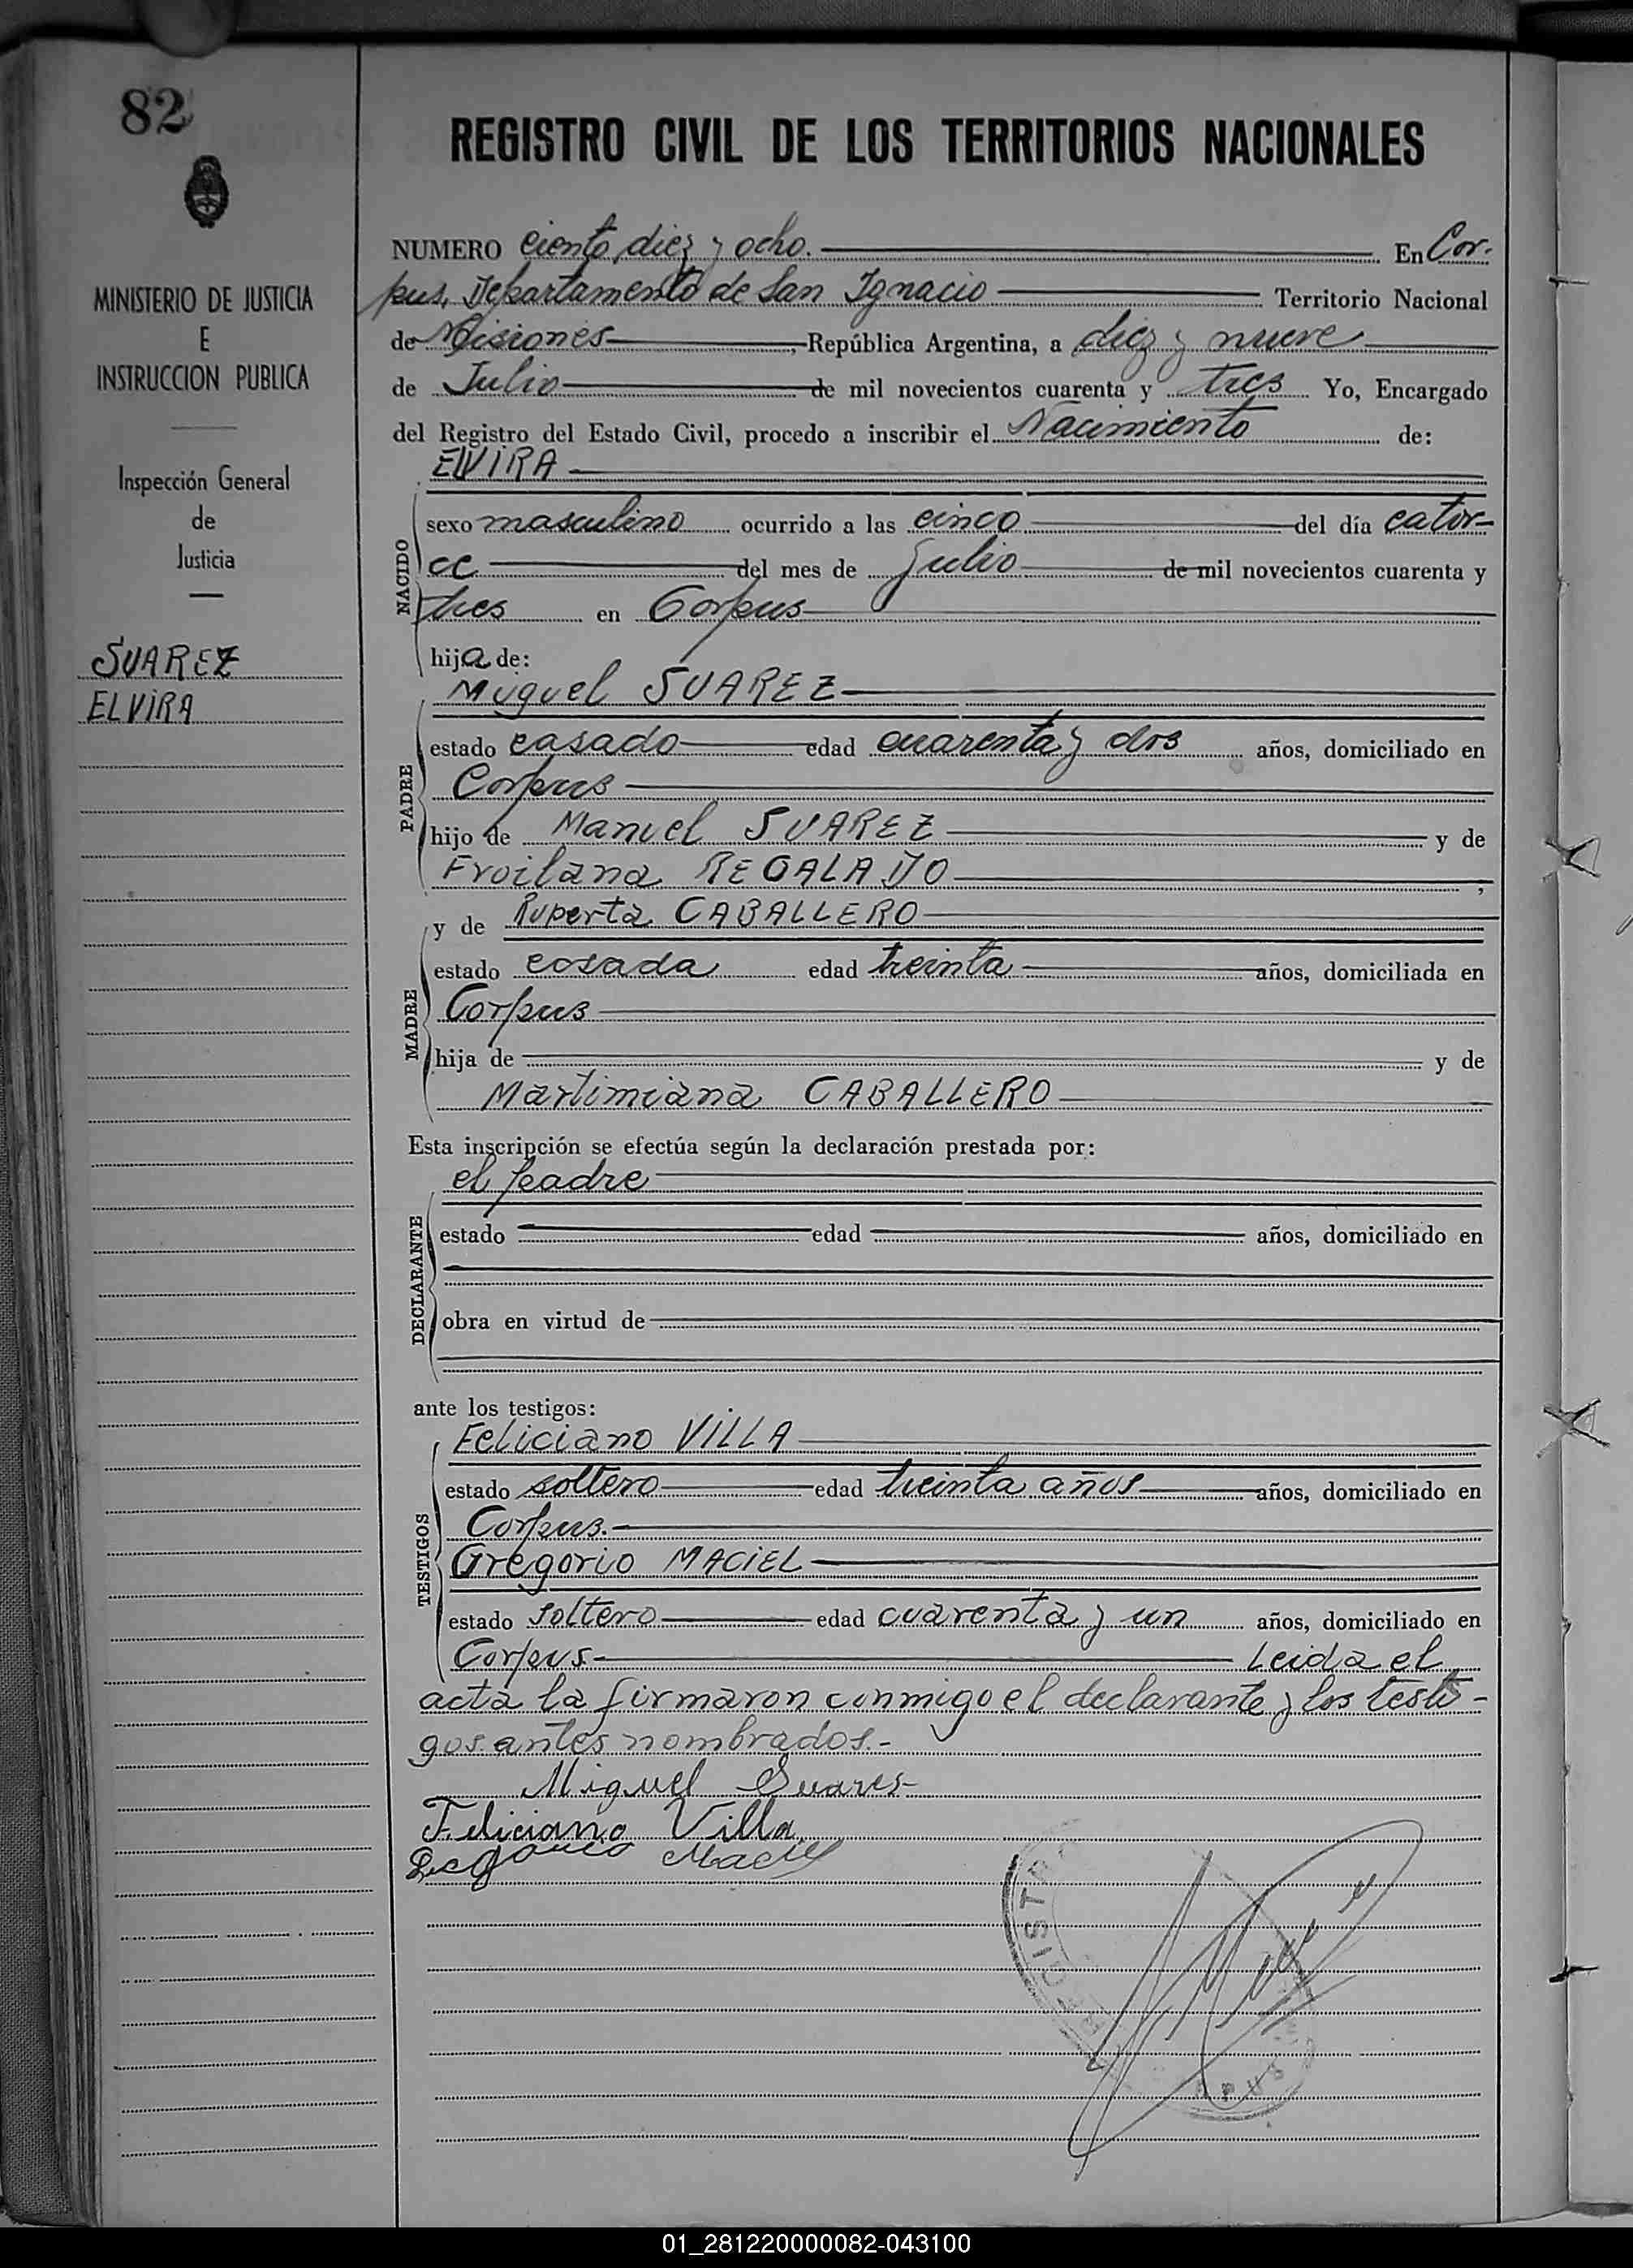 82
MINISTERIO DE JUSTICIA
E
INSTRUCCION PUBLICA
Inspección General
de
Justicia
SUAREZ
ELVIRA
REGISTRO CIVIL DE LOS TERRITORIOS NACIONALES
NUMERO ciento diez y ocho. En Cor-
pus, Departamento de San Ignacio Territorio Nacional
de Misiones, República Argentina, a diez y nueve
de Julio de mil novecientos cuarenta y tres Yo, Encargado
del Registro del Estado Civil, procedo a inscribir el Nacimiento de:
ELVIRA
NACIDO
sexo masculino ocurrido a las cinco del día cator-
ce del mes de Julio de mil novecientos cuarenta y
tres en Corpus
hija de:
Miguel SUAREZ
PADRE
estado casado edad cuarenta y dos años, domiciliado en
Corpus
hijo de Manuel SUAREZ y de
Froilana REGALADO ,
y de Ruperta CABALLERO
MADRE
estado casada edad treinta años, domiciliada en
Corpus
hija de y de
Martimiana CABALLERO
Esta inscripción se efectúa según la declaración prestada por:
el padre
DECLARANTE
estado edad años, domiciliado en
obra en virtud de
ante los testigos:
Feliciano VILLA
TESTIGOS
estado soltero edad treinta años años, domiciliado en
Corpus.
Gregorio MACIEL
estado soltero edad cuarenta y un años, domiciliado en
Corpus Leida el
acta la firmaron conmigo el declarante y los testi-
gos antes nombrados.-
Miguel Suares
Feliciano Villa
Gregorio Maciel
REGISTR
01_281220000082-043100